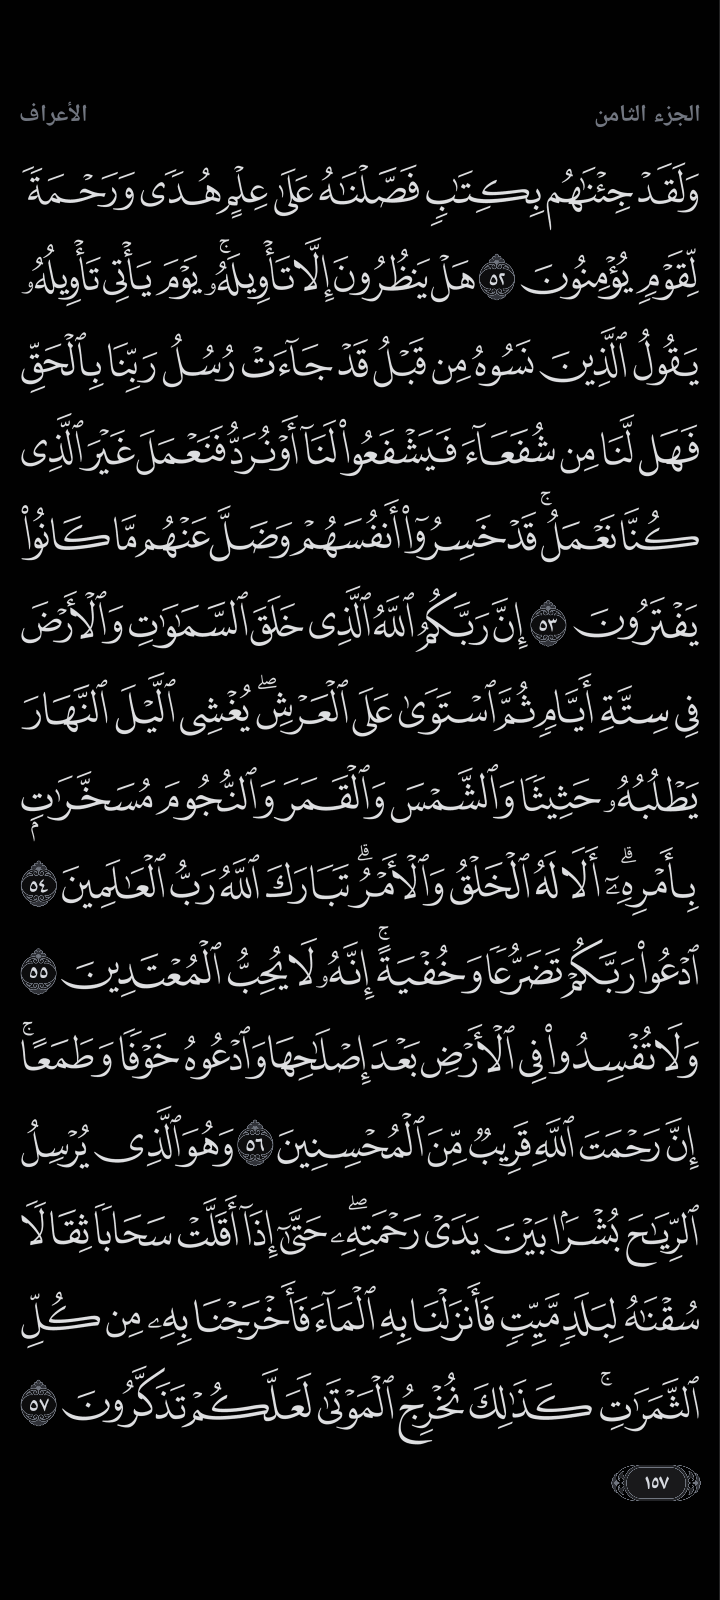 الجزء الثامن
الأعراف
وَلَقَدۡ جِئۡنَٰهُم بِكِتَٰبٖ فَصَّلۡنَٰهُ عَلَىٰ عِلۡمٍ هُدٗى وَرَحۡمَةٗ
لِّقَوۡمٖ يُؤۡمِنُونَ ٥٢ هَلۡ يَنظُرُونَ إِلَّا تَأۡوِيلَهُۥۚ يَوۡمَ يَأۡتِي تَأۡوِيلُهُۥ
يَقُولُ ٱلَّذِينَ نَسُوهُ مِن قَبۡلُ قَدۡ جَآءَتۡ رُسُلُ رَبِّنَا بِٱلۡحَقِّ
فَهَل لَّنَا مِن شُفَعَآءَ فَيَشۡفَعُواْ لَنَآ أَوۡ نُرَدُّ فَنَعۡمَلَ غَيۡرَ ٱلَّذِي
كُنَّا نَعۡمَلُۚ قَدۡ خَسِرُوٓاْ أَنفُسَهُمۡ وَضَلَّ عَنۡهُم مَّا كَانُواْ
يَفۡتَرُونَ ٥٣ إِنَّ رَبَّكُمُ ٱللَّهُ ٱلَّذِي خَلَقَ ٱلسَّمَٰوَٰتِ وَٱلۡأَرۡضَ
فِي سِتَّةِ أَيَّامٖ ثُمَّ ٱسۡتَوَىٰ عَلَى ٱلۡعَرۡشِۖ يُغۡشِي ٱلَّيۡلَ ٱلنَّهَارَ
يَطۡلُبُهُۥ حَثِيثٗا وَٱلشَّمۡسَ وَٱلۡقَمَرَ وَٱلنُّجُومَ مُسَخَّرَٰتِۭ
بِأَمۡرِهِۦٓۗ أَلَا لَهُ ٱلۡخَلۡقُ وَٱلۡأَمۡرُۗ تَبَارَكَ ٱللَّهُ رَبُّ ٱلۡعَٰلَمِينَ ٥٤
ٱدۡعُواْ رَبَّكُمۡ تَضَرُّعٗا وَخُفۡيَةًۚ إِنَّهُۥ لَا يُحِبُّ ٱلۡمُعۡتَدِينَ ٥٥
وَلَا تُفۡسِدُواْ فِي ٱلۡأَرۡضِ بَعۡدَ إِصۡلَٰحِهَا وَٱدۡعُوهُ خَوۡفٗا وَطَمَعًاۚ
إِنَّ رَحۡمَتَ ٱللَّهِ قَرِيبٞ مِّنَ ٱلۡمُحۡسِنِينَ ٥٦ وَهُوَ ٱلَّذِي يُرۡسِلُ
ٱلرِّيَٰحَ بُشۡرَۢا بَيۡنَ يَدَيۡ رَحۡمَتِهِۦۖ حَتَّىٰٓ إِذَآ أَقَلَّتۡ سَحَابٗا ثِقَالٗا
سُقۡنَٰهُ لِبَلَدٖ مَّيِّتٖ فَأَنزَلۡنَا بِهِ ٱلۡمَآءَ فَأَخۡرَجۡنَا بِهِۦ مِن كُلِّ
ٱلثَّمَرَٰتِۚ كَذَٰلِكَ نُخۡرِجُ ٱلۡمَوۡتَىٰ لَعَلَّكُمۡ تَذَكَّرُونَ ٥٧
١٥٧